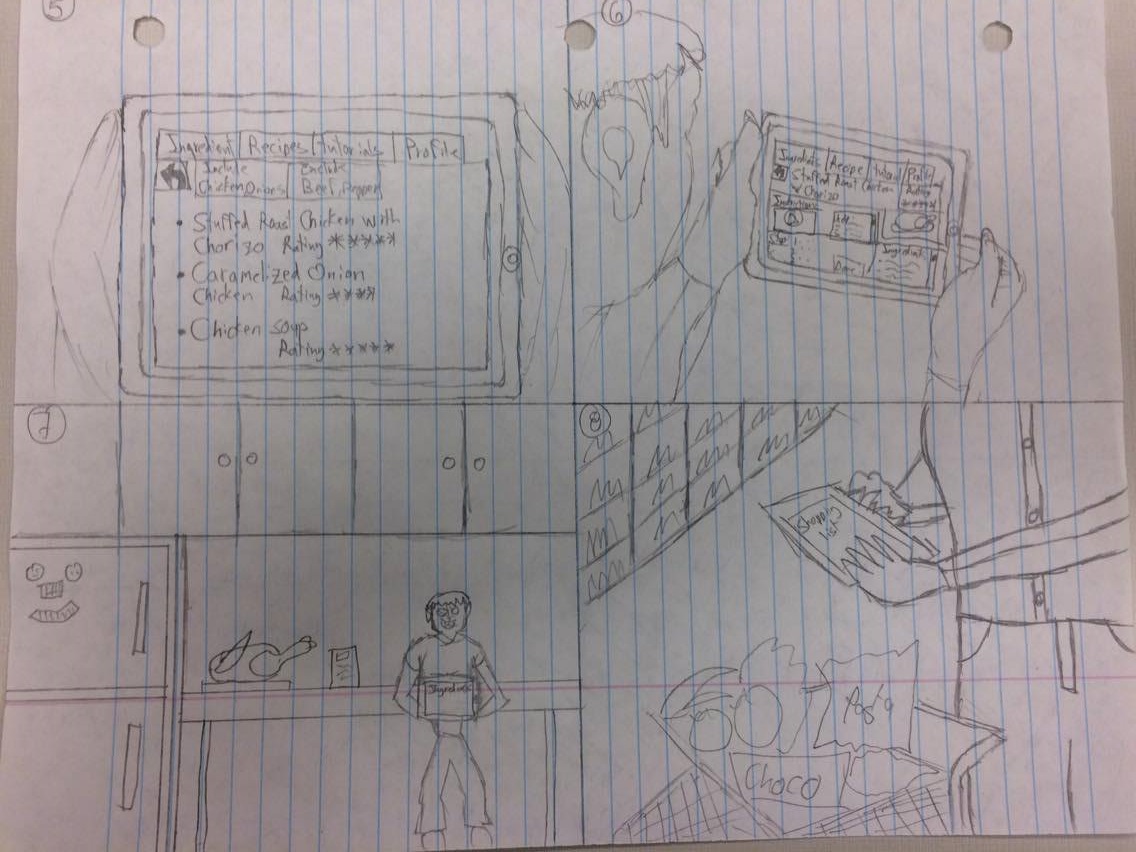 5
Ingredient Recipes Tutorials Profile
Include Exclude
Chicken, Onions Beef, Pepper
• Stuffed Roast Chicken with
Chorizo Rating *****
• Caramelized Onion
Chicken Rating ****
• Chicken soup
Rating *****
6
Ingredients Recipe Tutorial Profile
Stuffed Roast Chicken Rating
w Chorizo *****
Ingredients
7
Ingredients
8
Pasta
Choco